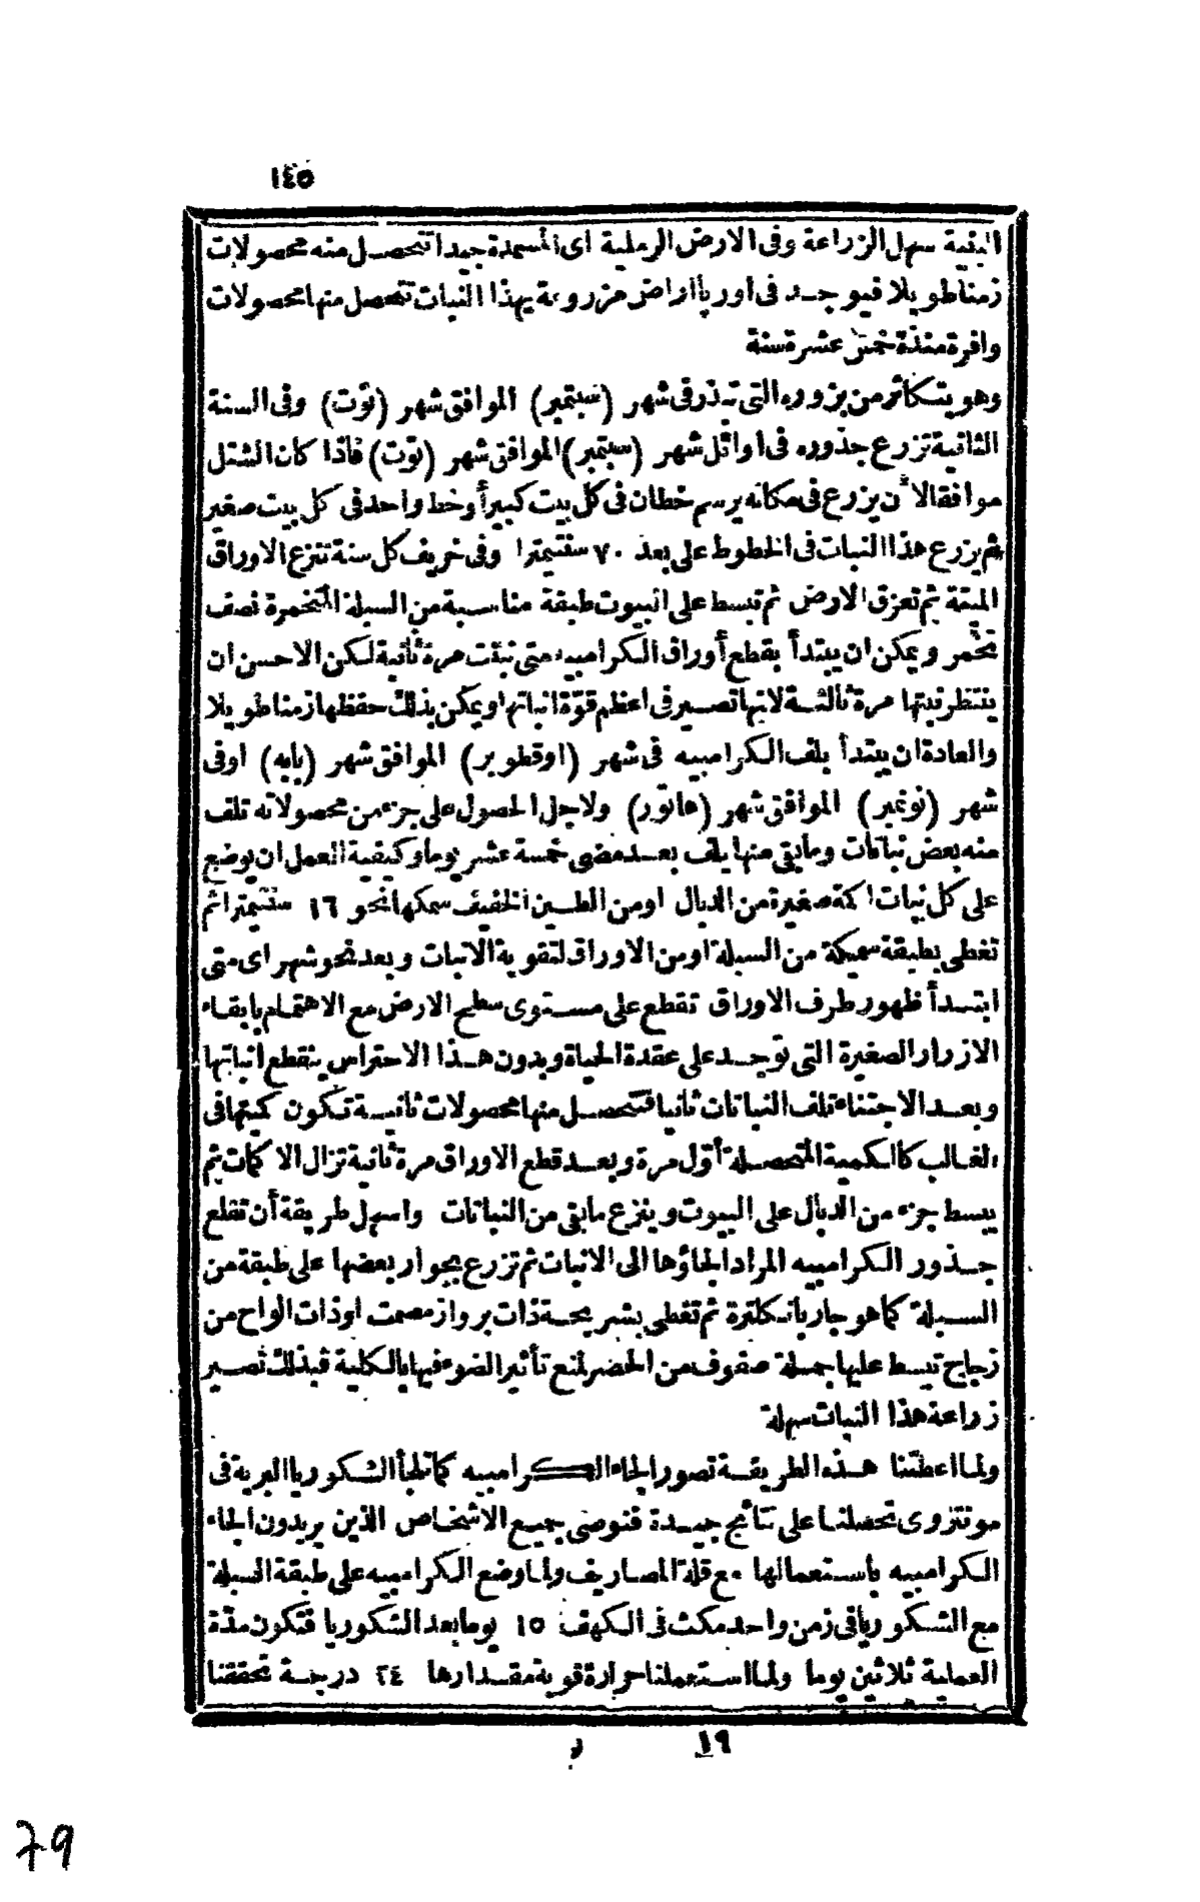 ١٤٥
البنية سهل الزراعة وفى الارض الرملية اى المسمدة جيدا تتحصل منه محصولات
زمنا طويلا فيوجد فى اور پا اراض مزروعة بهذا النبات تتحصل منها محصولات
وافرة منذ خمس عشرة سنة
وهو يتكاثر من بزوره التى تبذر فى شهر (سبتمبر) الموافق شهر (توت) وفى السنة
الثانية تزرع جذوره فى اوائل شهر (سبتمبر) الموافق شهر (توت) فاذا كان الشتل
موافقا لان يزرع فى مكانه يرسم خطان فى كل بيت كبير أو خط واحد فى كل بيت صغير
ثم يزرع هذا النبات فى الخطوط على بعد ٧٠ سنتيمترا وفى خريف كل سنة تنزع الاوراق
الميتة ثم تعزق الارض ثم تبسط على البيوت طبقة مناسبة من السبلة المتخمرة نصف
تخمر ويمكن ان يبتدأ بقطع أوراق الكرامبيه متى نبتت مرة ثانية لكن الاحسن ان
ينتظر نبتها مرة ثالثة لانها تصير فى اعظم قوّة انباتها ويمكن بذلك حفظها زمنا طويلا
والعادة ان يبتدأ بلف الكرامبيه فى شهر (اوقطوبر) الموافق شهر (بابه) اوفى
شهر (نونمبر) الموافق شهر (هاتور) ولاجل الحصول على جزء من محصولاته تلف
منه بعض نباتات وما بقى منها يلف بعد مضى خمسة عشر يوما وكيفية العمل ان يوضع
على كل نبات اكمة صغيرة من الدبال او من الطين الخفيف سمكها نحو ١٦ سنتيمترا ثم
تغطى بطبقة سميكة من السبلة او من الاوراق لتقوية الانبات وبعد نحو شهر اى متى
ابتدأ ظهور طرف الاوراق تقطع على مستوى سطح الارض مع الاهتمام بابقاء
الازرار الصغيرة التى توجد على عقدة الحياة وبدون هذا الاحتراس ينقطع انباتها
وبعد الاجتناء تلف النباتات ثانيا فتتحصل منها محصولات ثانية تكون كميتها فى
الغالب كالكمية المتحصلة أوّل مرة وبعد قطع الاوراق مرة ثانية تزال الاكمات ثم
يبسط جزء من الدبال على البيوت وينزع ما بقى من النباتات واسهل طريقة أن تقلع
جذور الكرامبيه المراد الجاؤها الى الانبات ثم تزرع بجوار بعضها على طبقة من
السبلة كما هو جار بانكلترة ثم تغطى بشريحة ذات برواز مصمت او ذات الواح من
زجاج تبسط عليها جملة صفوف من الحصر لمنع تأثير الضوء فيها بالكلية فبذلك تصير
زراعة هذا النبات سهلة
ولما اعطتنا هذه الطريقة تصور الجاء الكرامبيه كما تلجأ الشكوريا البرية فى
مونتزوى تحصلنا على نتائج جيدة فنوصى جميع الاشخاص الذين يريدون الجاء
الكرامبيه باستعمالها مع قلة المصاريف ولما وضع الكرامبيه على طبقة السبلة
مع الشكوريا فى زمن واحد مكث فى الكهف ١٥ يوما بعد الشكوريا فتكون مدّة
العملية ثلاثين يوما ولما استعملنا حرارة قوية مقدارها ٢٤ درجة تحققنا
١٩ ر
79